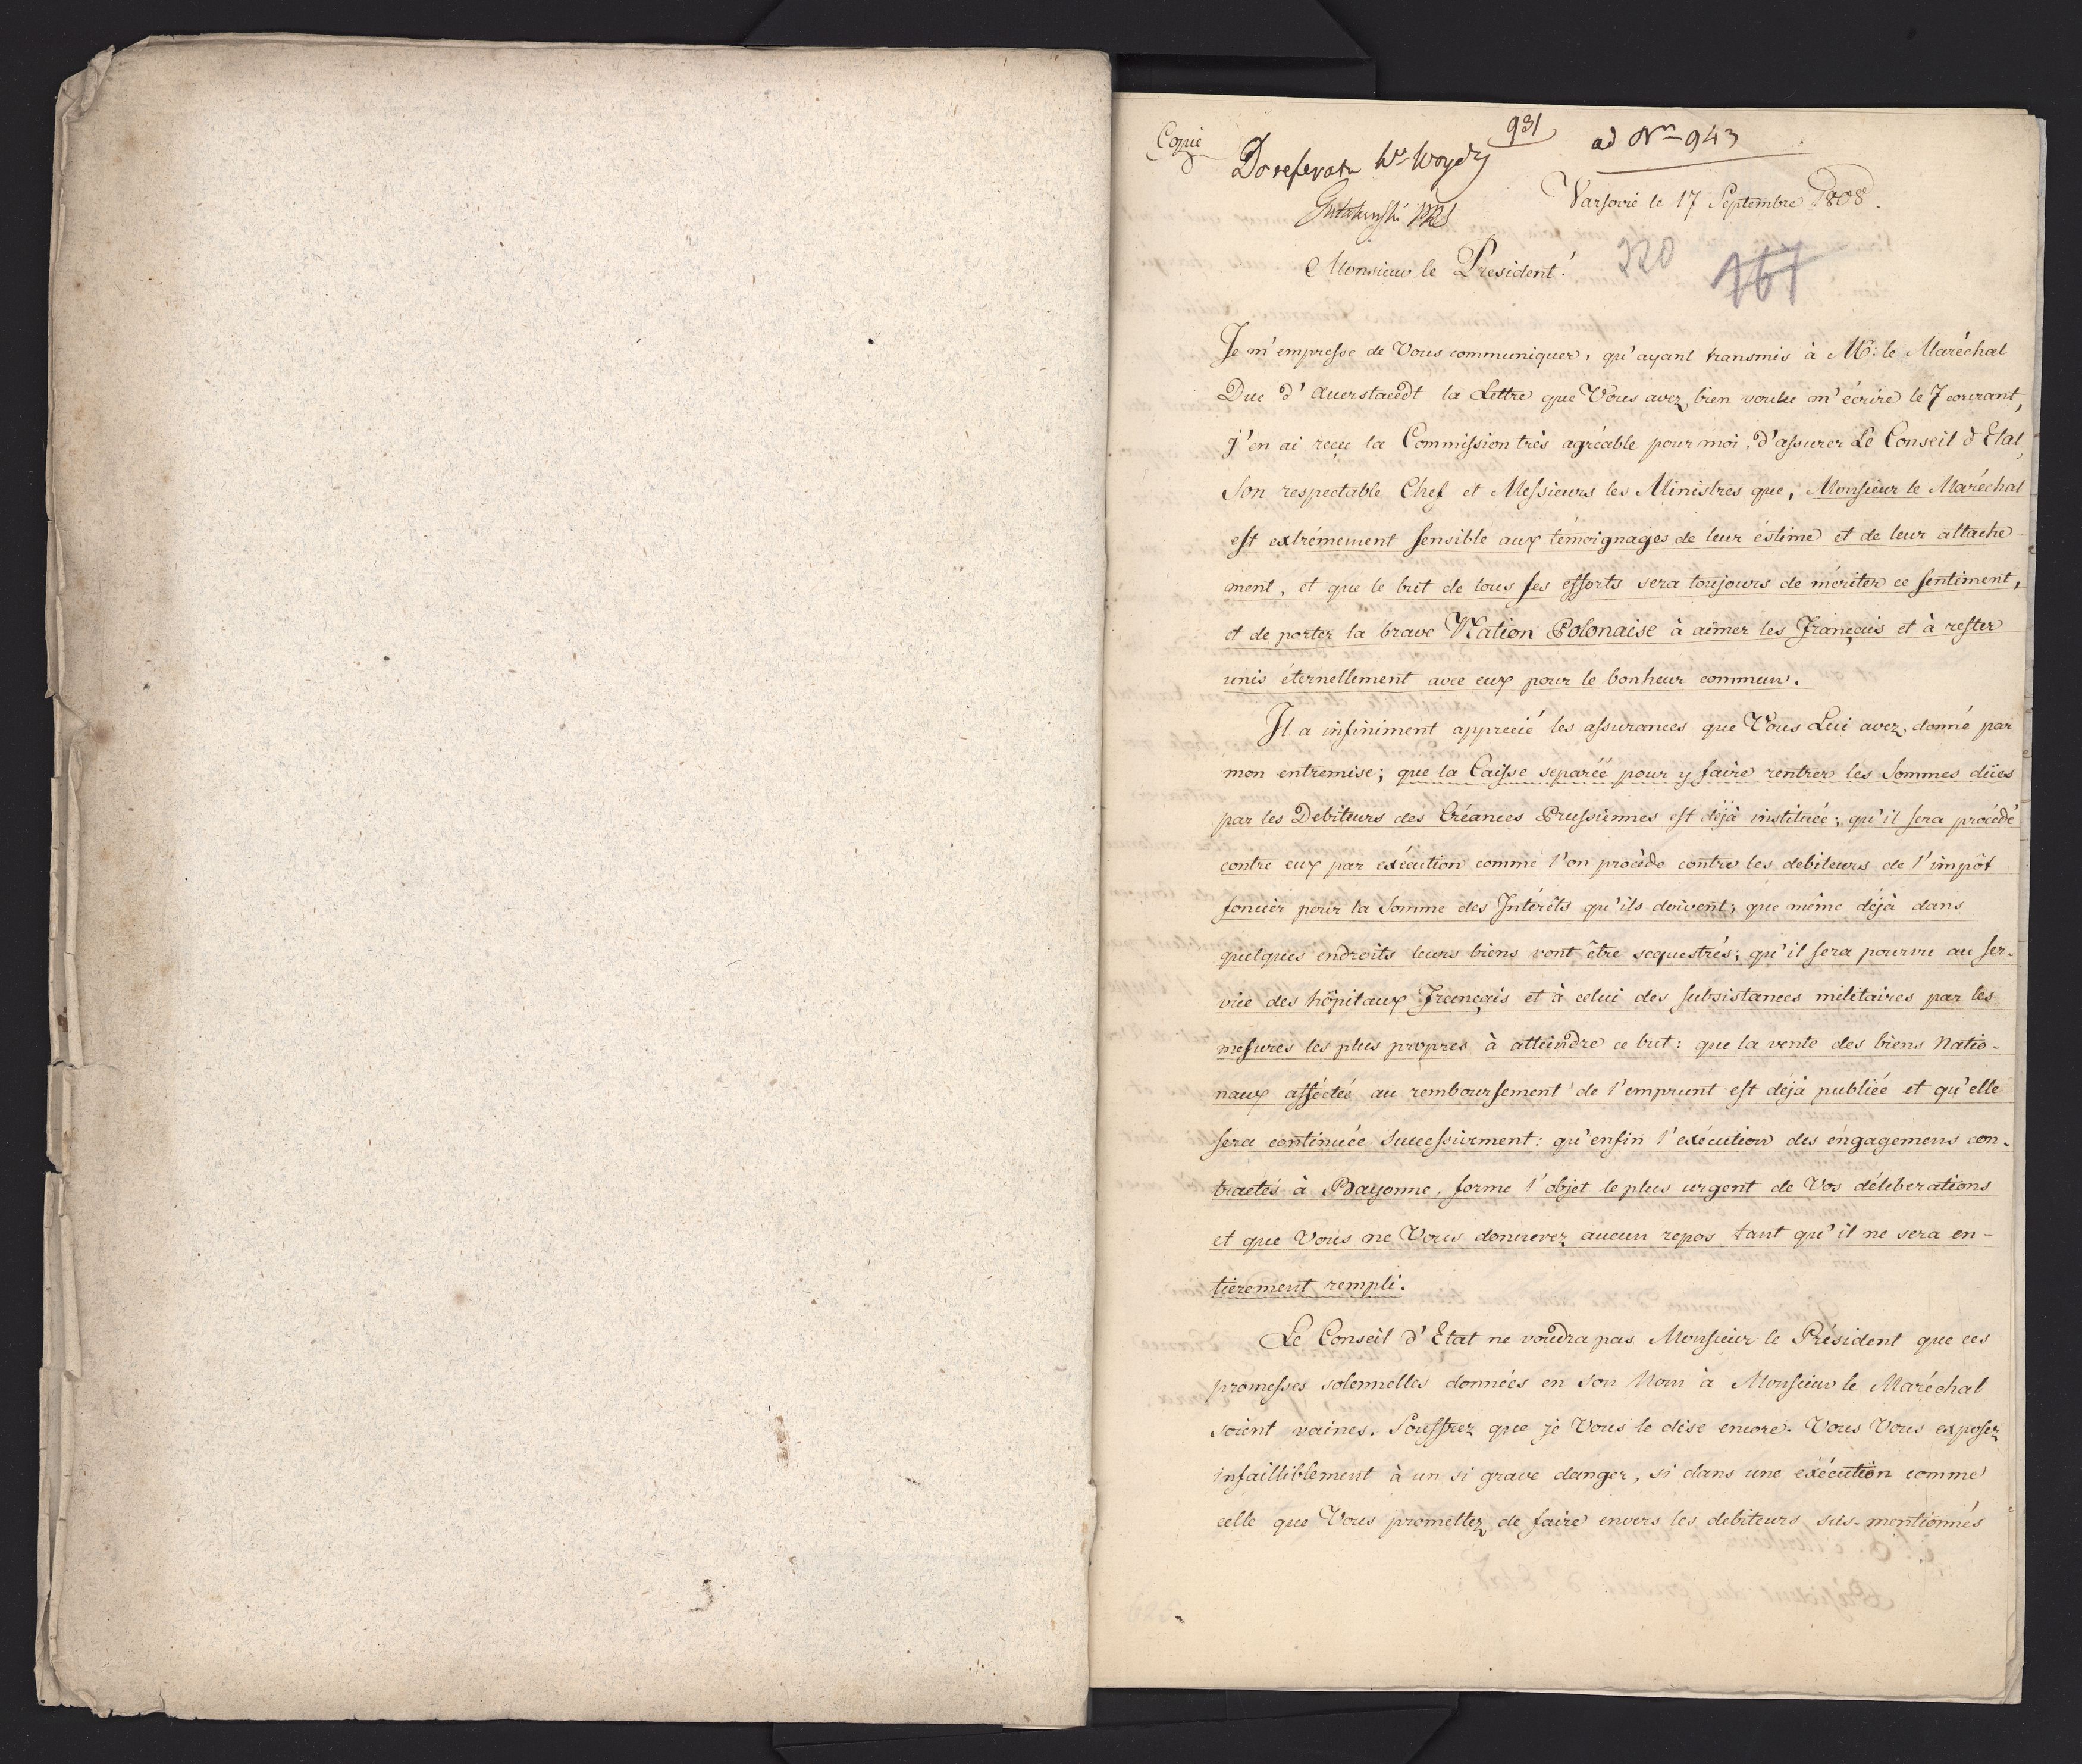 Copie
931
ad Nrm 943
Do referatu Wo Woydy
Gutakowski PRS
Varsovie le 17 Septembre 1808.
Monsieur le President!
220
167
Je m'empresse de Vous communiquer, qu'ayant transmis à Mr: le Maréchal
Duc d'Auerstaedt la Lettre que Vous avez bien voulu m'écrire le 7 courant,
j'en ai reçu la Commission très agréable pour moi, d'assurer Le Conseil d'Etat,
Son respectable Chef et Messieurs les Ministres que, Monsieur le Maréchal
est extrémement sensible aux témoignages de leur éstime et de leur attache-
ment, et que le but de tous ses efforts sera toujours de mériter ce sentiment,
et de porter la brave Nation Polonaise à aimer les Français et à rester
unis éternellement avec eux pour le bonheur commun.
Il a infiniment apprecié les assurances que Vous Lui avez donné par
mon entremise; que la Caisse separéé pour y faire rentrer les Sommes dües
par les Debiteurs des Créances Prussiennes est déjà instituée; qu'il sera procédé
contre eux par exécution comme l'on procède contre les debiteurs de l'impôt
foncier pour la Somme des Intérêts qu'ils doivent; que même déjà dans
quelques endroits leurs biens vont être sequestrés; qu'il sera pourvu au ser-
vice des hôpitaux Français et à celui des subsistances militaires par les
mesures les plus propres à atteindre ce but: que la vente des biens Natio-
naux afféctée au remboursement de l'emprunt est déjà publiée et qu'elle
sera continuée successivement: qu'enfin l'exécution des éngagemens con-
tractés à Bayonne, forme l'objet le plus urgent de Vos déliberations
et que Vous ne Vous donnerez aucun repos tant qu'il ne sera en-
tierement rempli.
Le Conseil d'Etat ne voudra pas Monsieur le Président que ces
promesses solemnelles données en son Nom à Monsieur le Maréchal
soient vaines. Souffrez que je Vous le dise encore. Vous Vous exposez
infailliblement à un si grave danger, si dans une exécution comme
celle que Vous promettez de faire envers les debiteurs sus-mentionnés